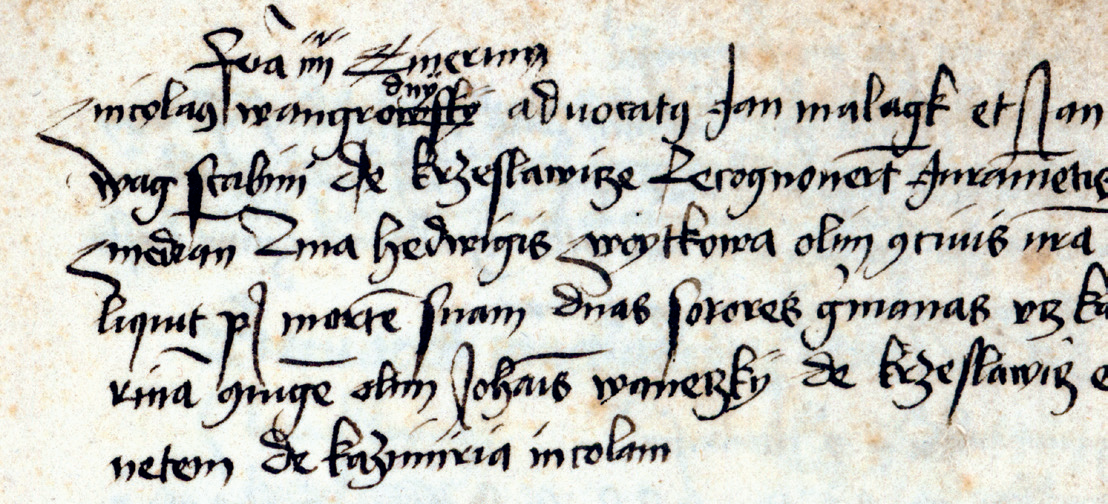 fr̄a iiii Cinerum
Nicolaus wangrodny advocatus Jan malagk et Jan
wag scabini de krzeslawicze Recognouer̄t Juramētis
median Dn̄a hedwigis woytkowa olim ciuis nr̄a
liquit post mortē suam duas sorores gm̄anas vz ka
rinā ꝯiugē olim Joha̅is wanieczky de krzeslawicz e
netem de kazimiria incolam